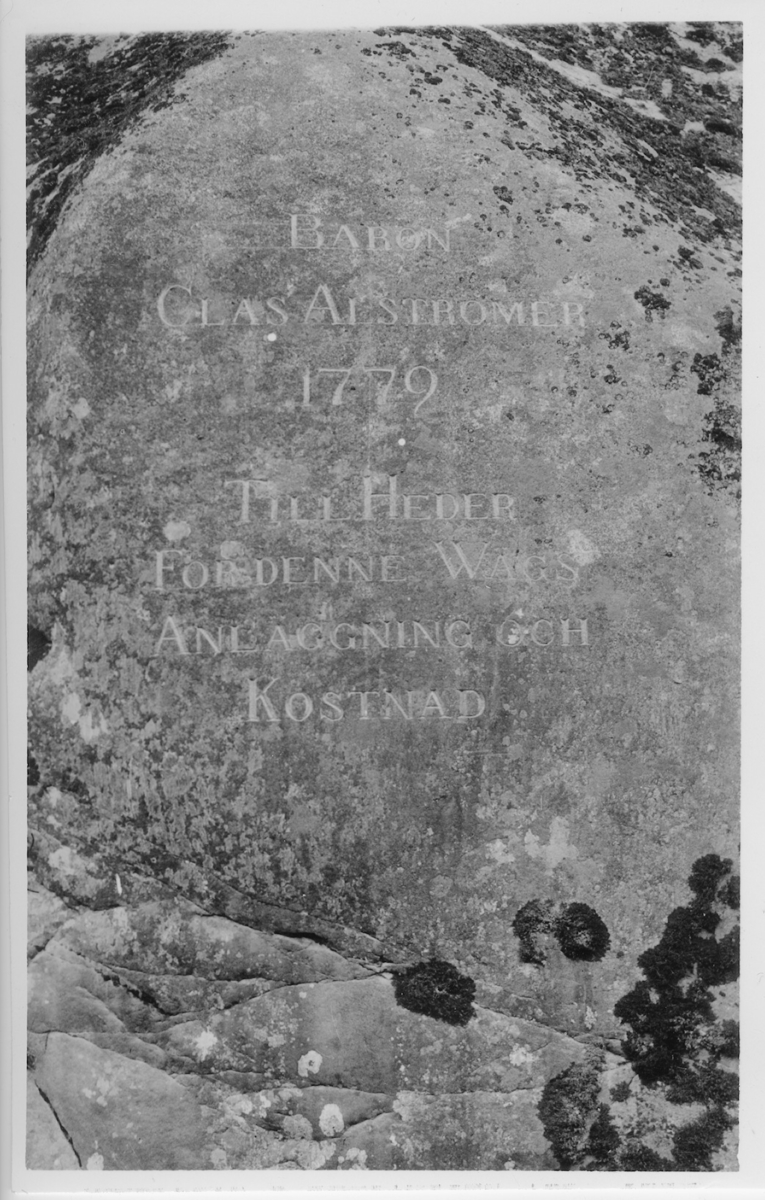 BARON
CLAS ALSTROMER
1779
TILL HEDER
FOR DENNE WAGS
ANLAGGNING OCH
KOSTNAD